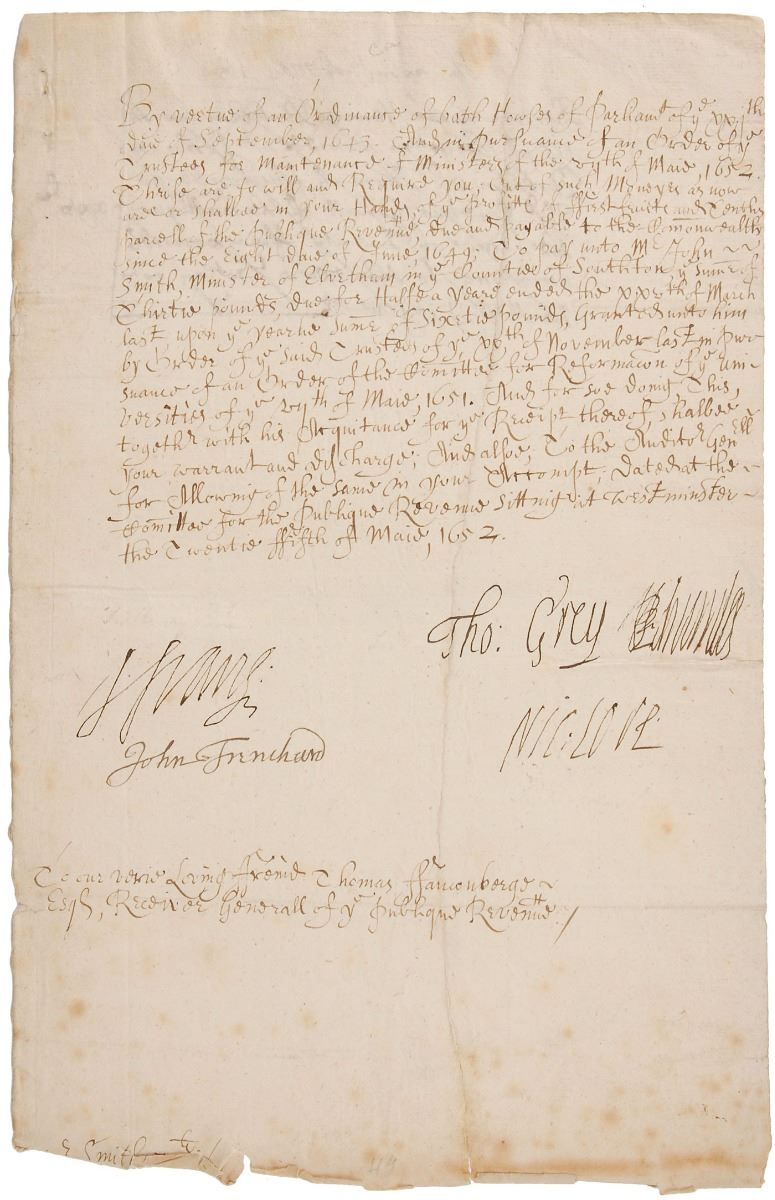 By vertue of an Ordinance of both Howses of Parliamt of ye xxjth
daie of September, 1643. And in Pursuance of an Order of ye
Trustees for Maintenance of Ministers of the
of Maie, 1652.
Theise are to will and Require you, Out of such Moneyes as now
are or shalbee in your Hands, of ye Profitts of ffirst fruits and Tenths
parcell of the Publique Revenue, due and payable to the Comonwealth
since the Eight daie of June, 1649: To pay unto Mr John
Smith, Minister of Elvetham in ye Countie of Southton ye Summe of
Thirtie pounds due for Halfe a Yeare ended the xxvth of March
last upon ye yearlie Summe of Sixtie pounds, Granted unto him
by Order of ye said Trustees of ye xxth of November last in Pur-
suance of an Order of the Comittee for Reformacon of ye Uni-
versities of ye of Maie, 1651. And for soe doing This,
together with his Acquitance for ye Receipt thereof, shalbee
your warrant and discharge; And alsoe, To the Auditor Genrll
for Allowing of the same in your Accompt; Dated at the
Comittee for the Publique Revenue Sitting at Westminster
the Twentie ffifth of Maie, 1652.
Tho: Grey
John Trenchard
Nic: Love
To our verie Loving Freind Thomas ffauconberge
Esqr, Receiver Generall of ye Publique Revenue /
Smith